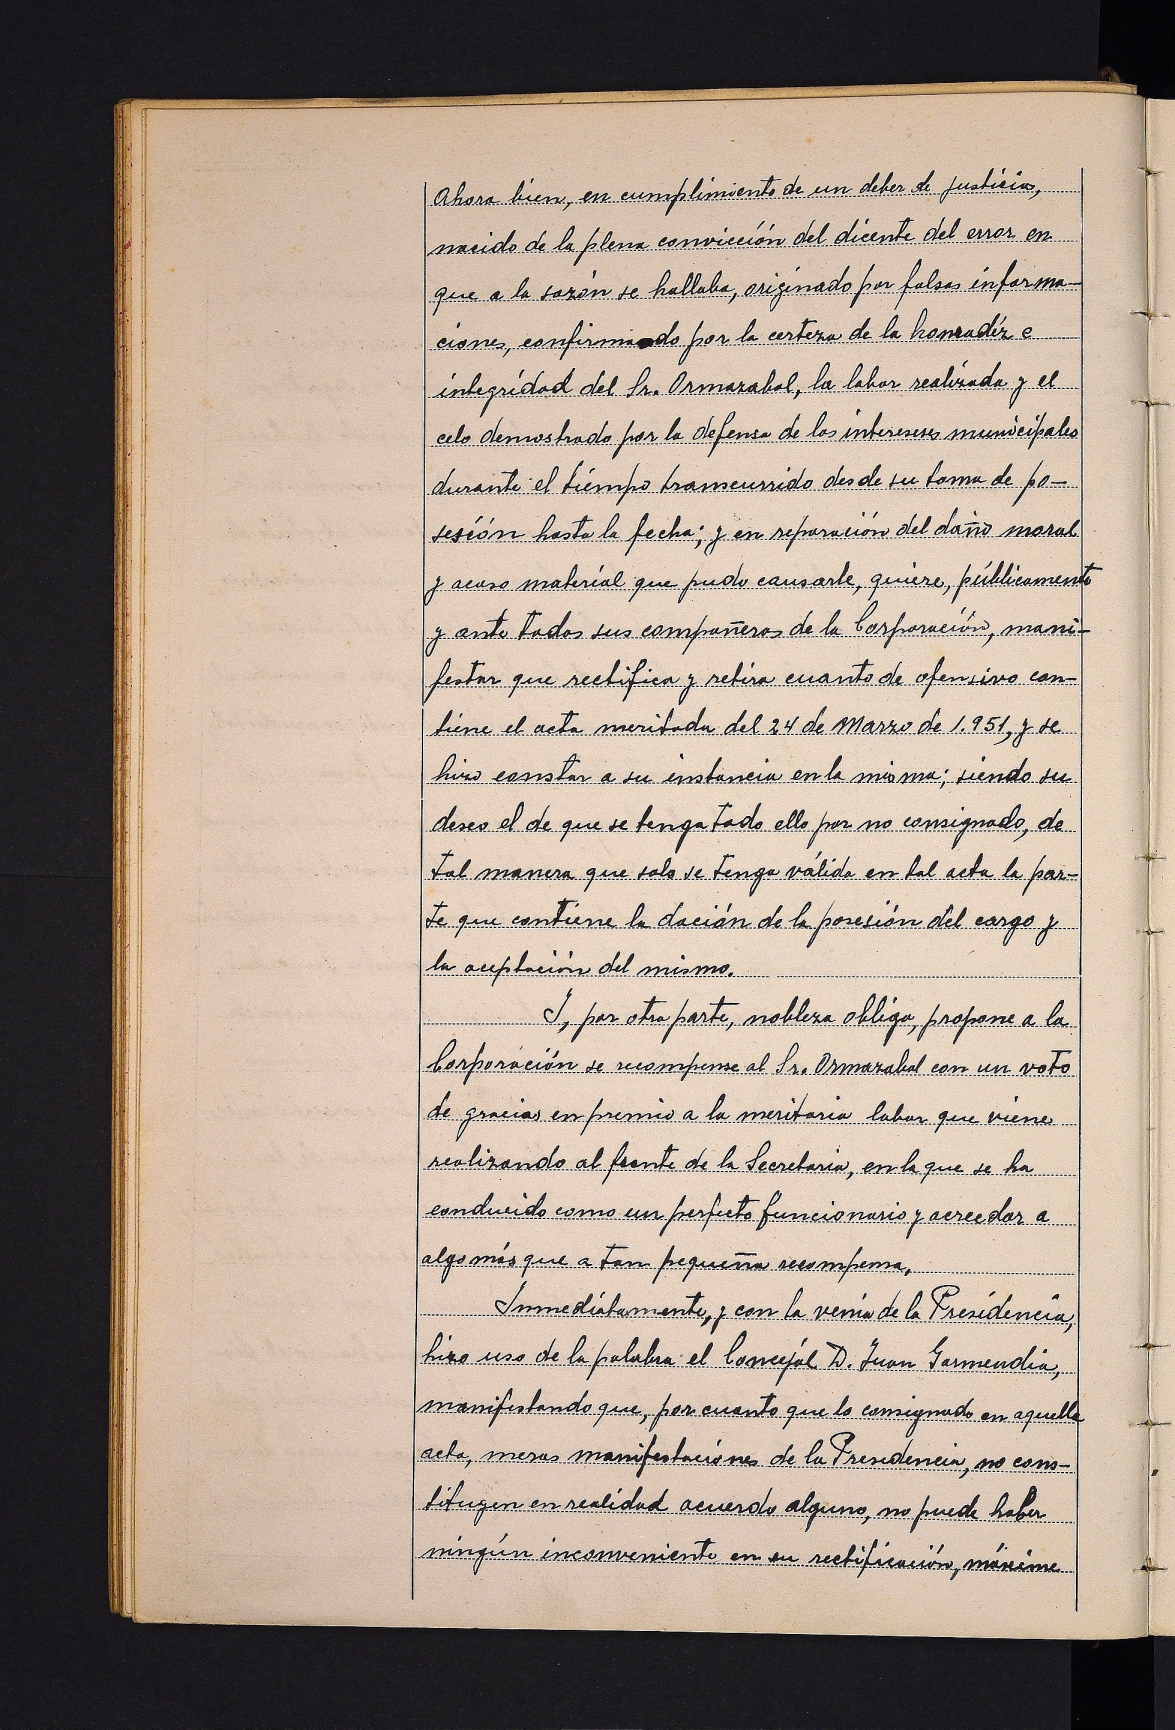 Ahora bien, en cumplimiento de un deber de justicia,
nacido de la plena convicción del dicente del error en
que a la sazón se hallaba, originado por falsas informa-
ciones, confirmado por la certeza de la honradéz e
integridad del Sr. Ormazabal, la labor realizada y el
celo demostrado por la defensa de los intereses municipales
durante el tiempo transcurrido desde su toma de po-
sesión hasta la fecha; y en reparación del daño moral
y acaso material que pudo causarle, quiere, públicamente
y ante todos sus compañeros de la Corporación, mani-
festar que rectifica y retira cuanto de ofensivo con-
tiene el acta meritada del 24 de Marzo de 1.951, y se
hizo constar a su instancia en la misma; siendo su
deseo el de que se tenga todo ello por no consignado, de
tal manera que solo se tenga válida en tal acta la par-
te que contiene la dación de la posesión del cargo y
la aceptación del mismo.
Y, por otra parte, nobleza obliga, propone a la
Corporación se recompense al Sr. Ormazabal con un voto
de gracias en premio a la meritoria labor que viene
realizando al frente de la Secretaria, en la que se ha
conducido como un perfecto funcionario y acreedor a
algo más que a tan pequeña recompensa.
Inmediatamente, y con la venia de la Presidencia,
hizo uso de la palabra el Concejál D. Juan Garmendia,
manifestando que, por cuanto que lo consignado en aquella
acta, meras manifestaciones de la Presidencia, no cons-
tituyen en realidad acuerdo alguno, no puede haber
ningún inconveniente en su rectificación, máxime